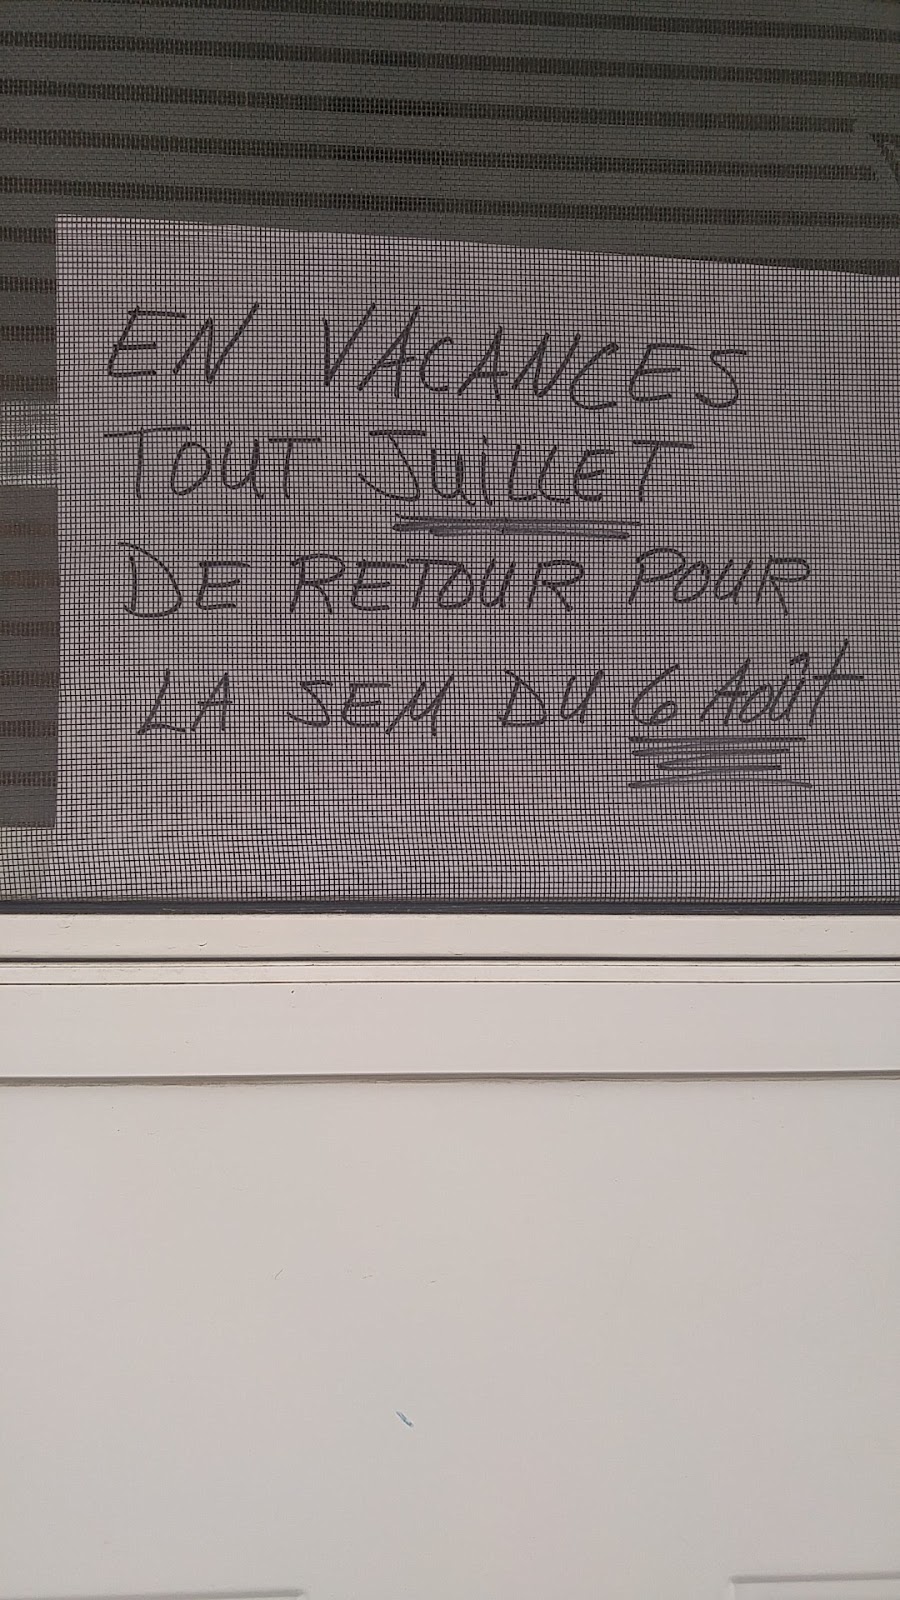 EN VACANCES
TOUT JUILLET
DE RETOUR POUR
LA SEM DU 6 Août